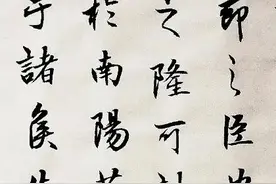 之臣
之隆可
於南陽
于諸侯